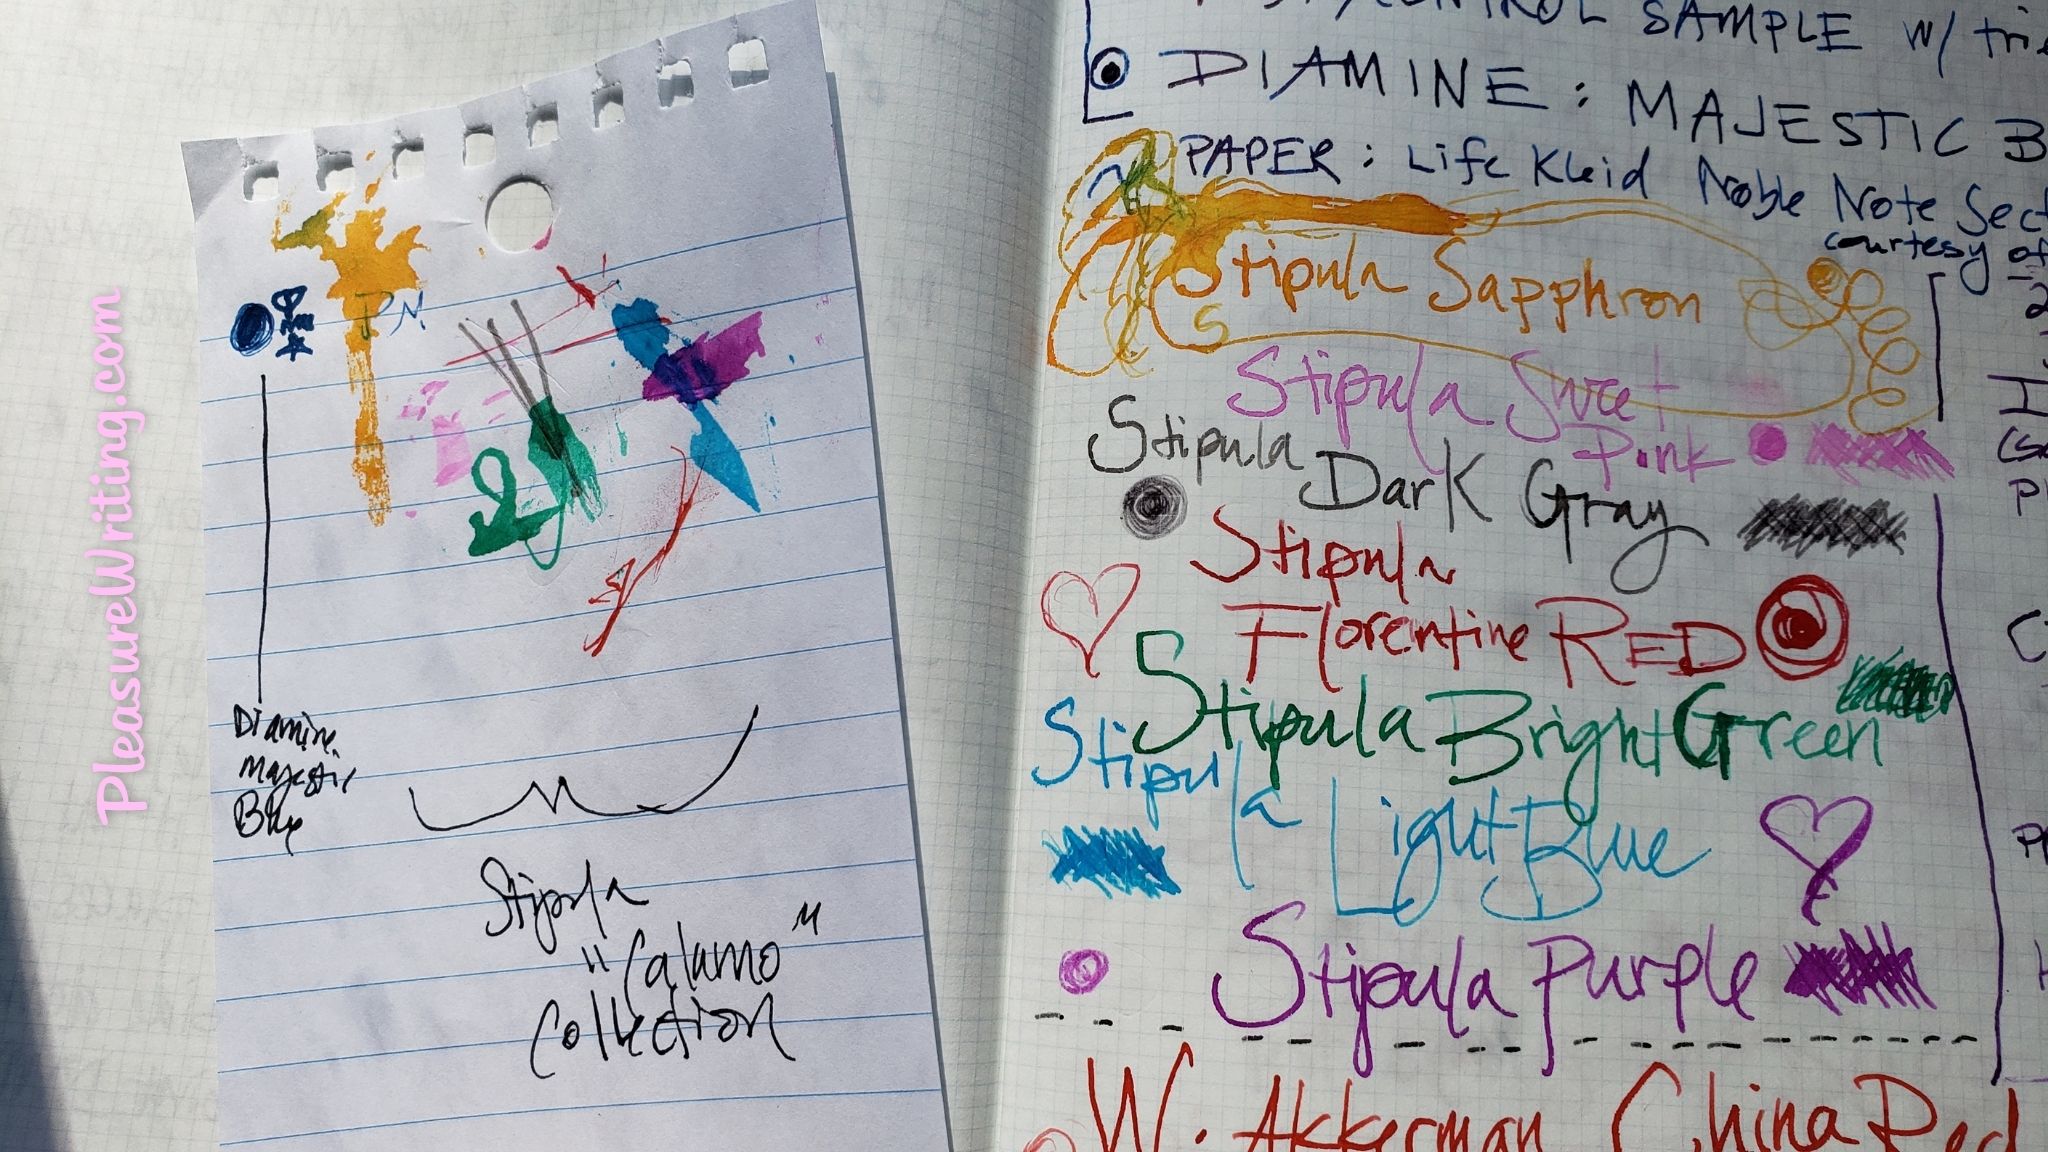 PleasureWriting.com
PN
Diamine
Majestic
Blue
Stipula
"Calamo"
Collection
CONTROL SAMPLE W/
DIAMINE: MAJESTIC B
PAPER: Life Kleid Noble Note Sect
courtesy of
Stipula Sapphron
S
Stipula Sweet
Pink
Stipula
Dark Gray
Stipula
Florentine RED
Stipula Bright Green
Stipula
Light Blue
Stipula Purple
W. Akkerman China Red